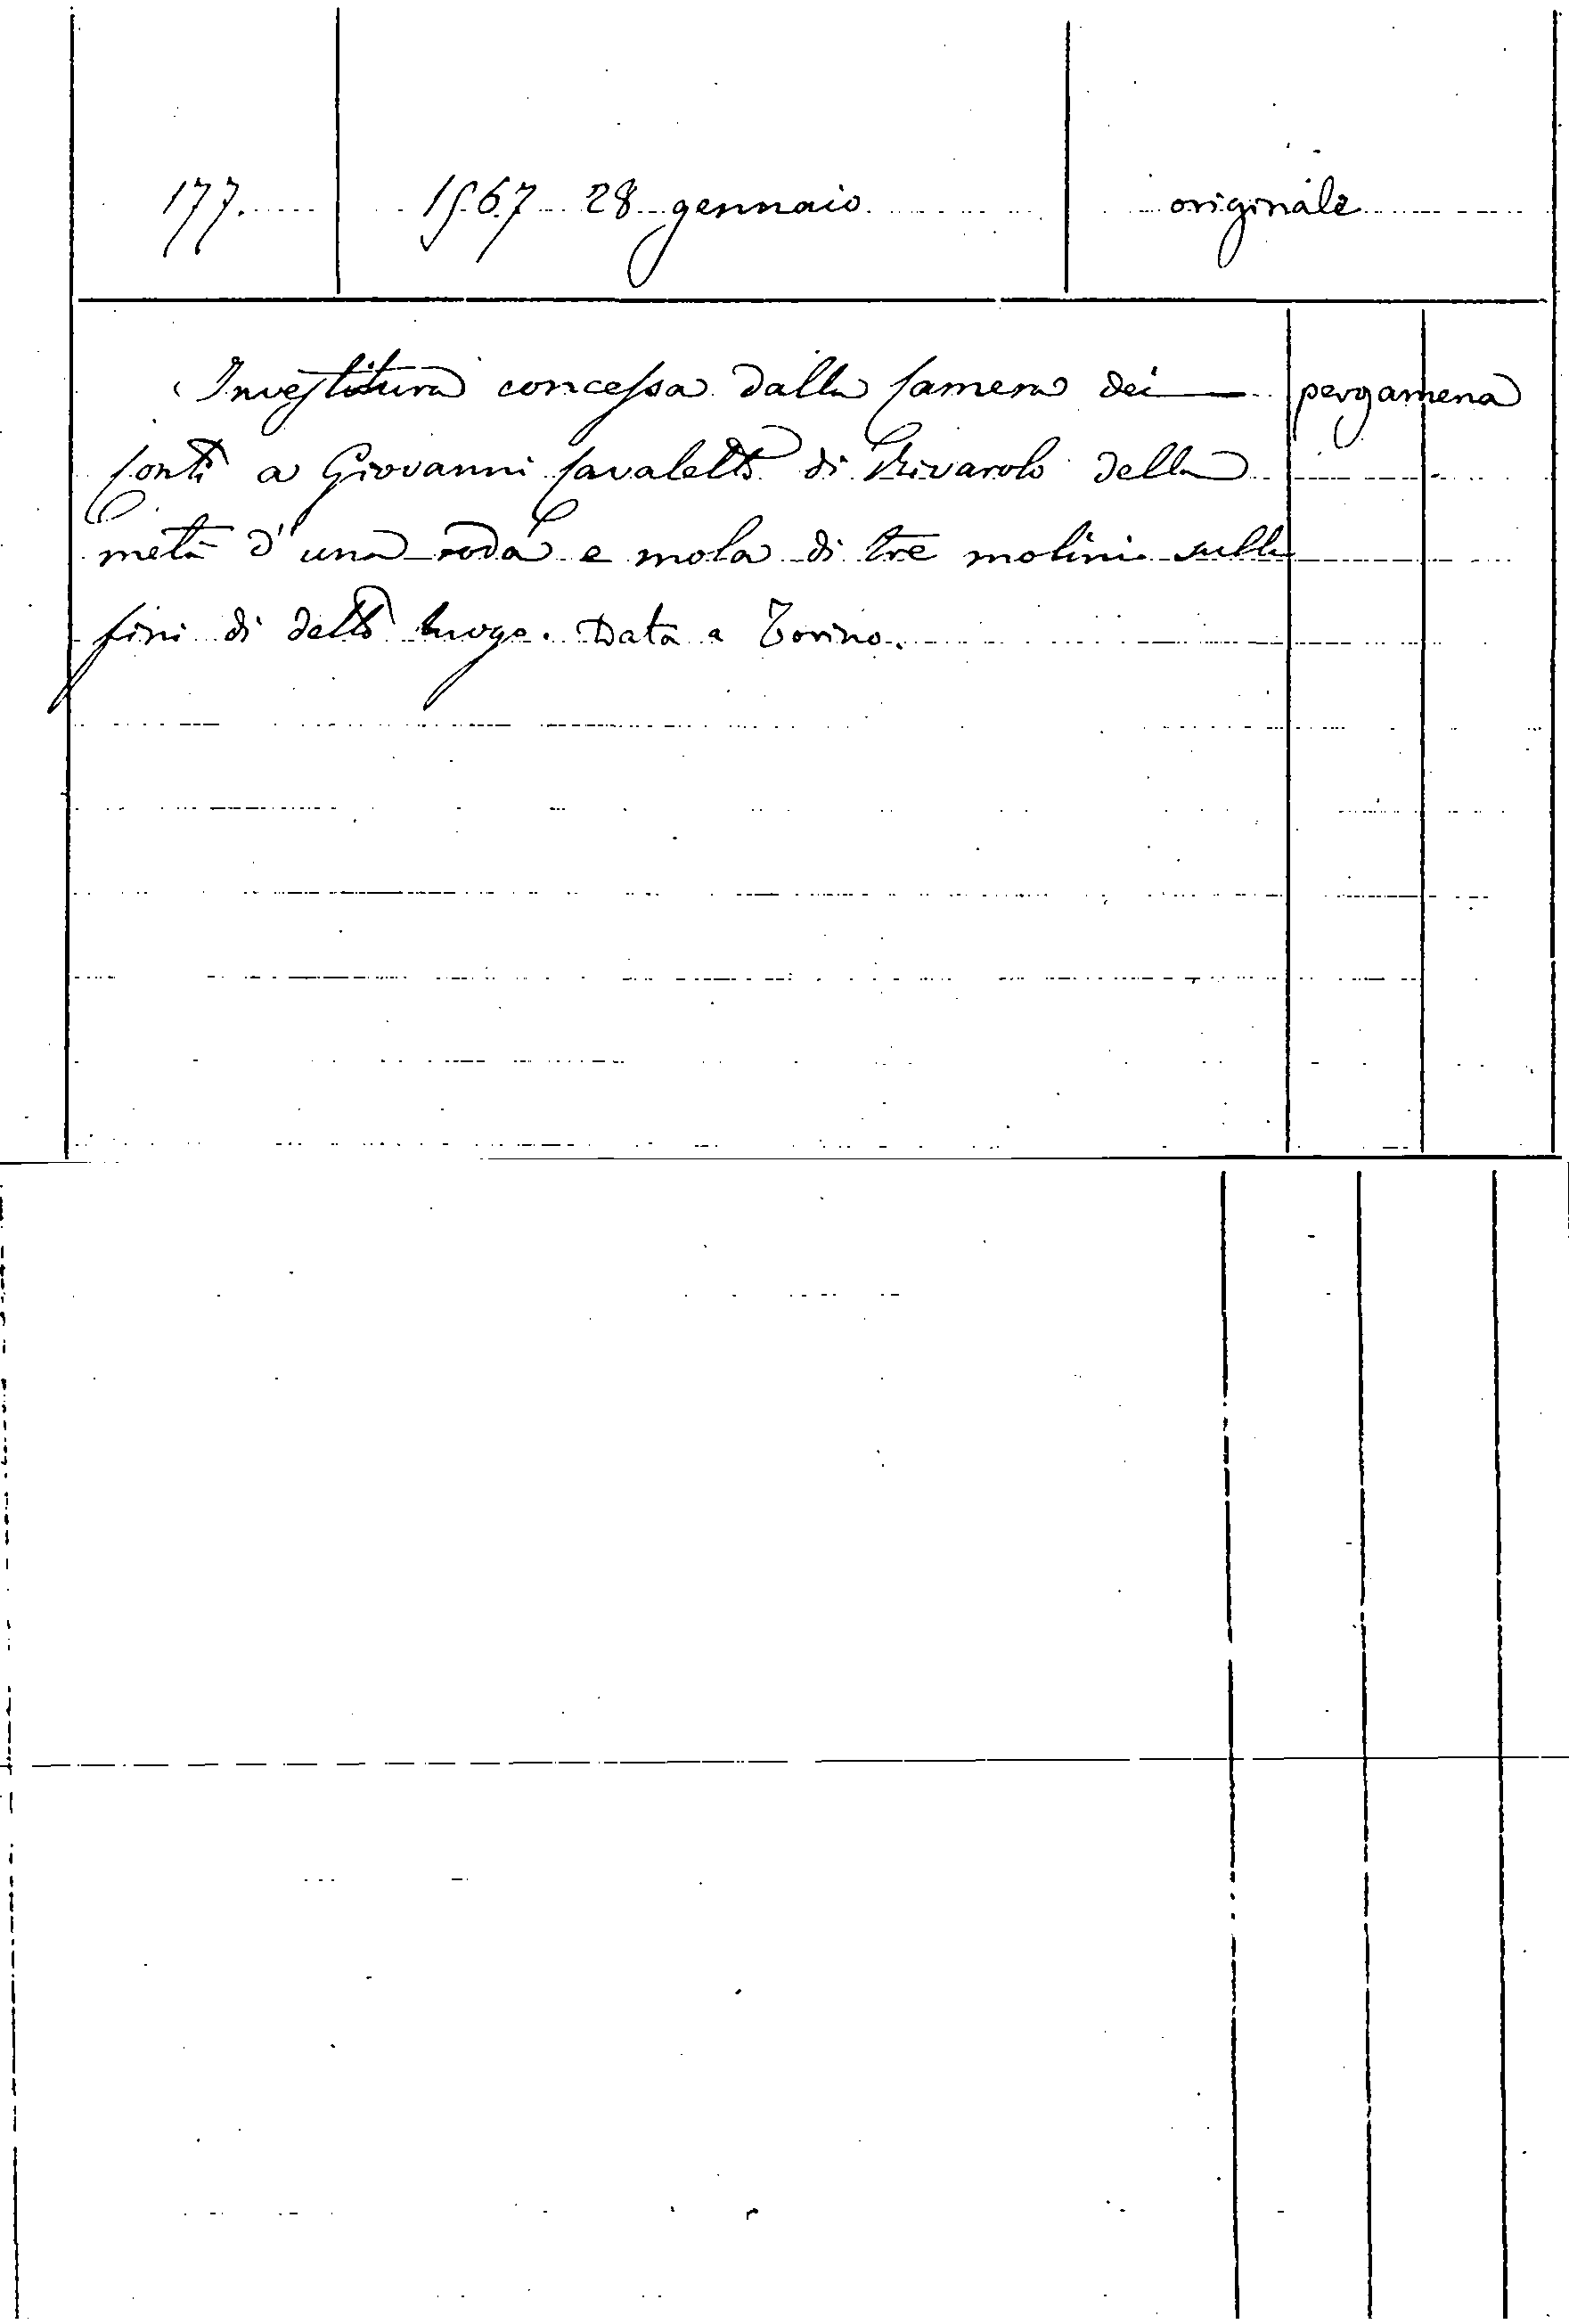 177. 1567 28 gennaio originale
Investitura concessa dalla Camera dei pergamena
Conti a Giovanni Cavaletto di Rivarolo della
metà d'una roda e mola di tre molini sulle
fini di detto luogo. Data a Torino.